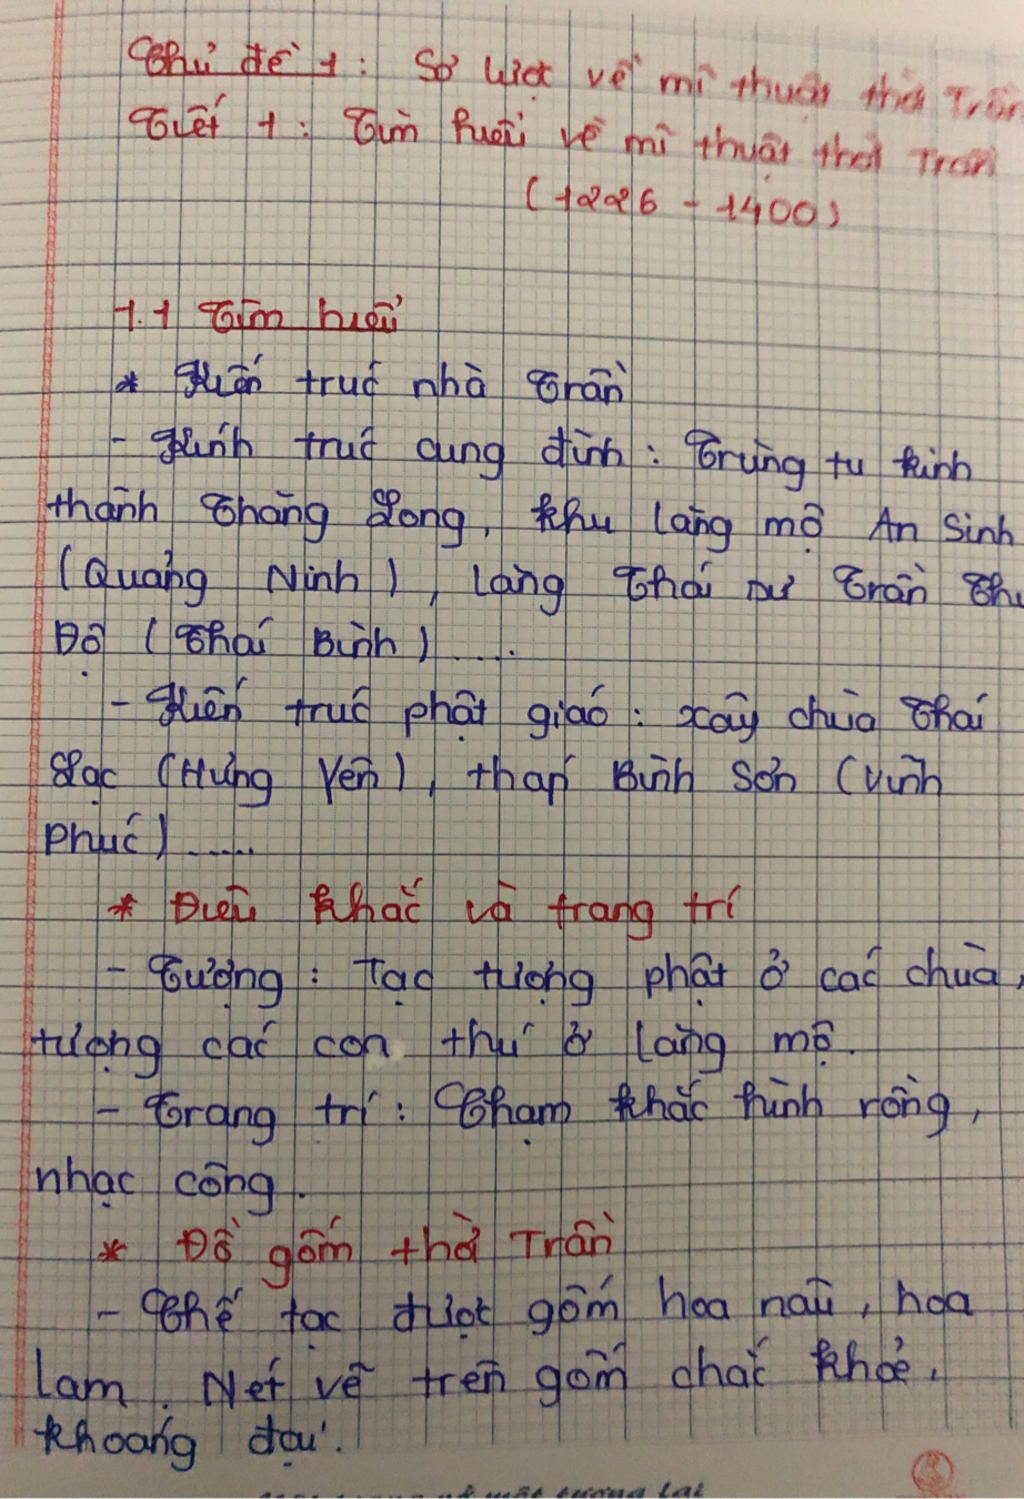 Chủ đề 1: Sơ lược về mĩ thuật thời Trần
Tiết 1: Tìm hiểu về mĩ thuật thời Trần
(1226 - 1400)
1.1 Tìm hiểu
* Kiến trúc nhà Trần
- Kiến trúc cung đình: Trùng tu kinh
thành Thăng Long, khu lăng mộ An Sinh
(Quảng Ninh), lăng Thái sư Trần Thủ
Độ (Thái Bình)....
- Kiến trúc phật giáo: xây chùa Thái
Lạc (Hưng Yên), tháp Bình Sơn (Vĩnh
Phúc).....
* Điêu khắc và trang trí
- Tượng: Tạc tượng phật ở các chùa,
tượng các con thú ở lăng mộ.
- Trang trí: Chạm khắc hình rồng,
nhạc công.
* Đồ gốm thời Trần
- Chế tác được gốm hoa nâu, hoa
lam. Nét vẽ trên gốm chắc khỏe,
khoáng đạt.
tương lai